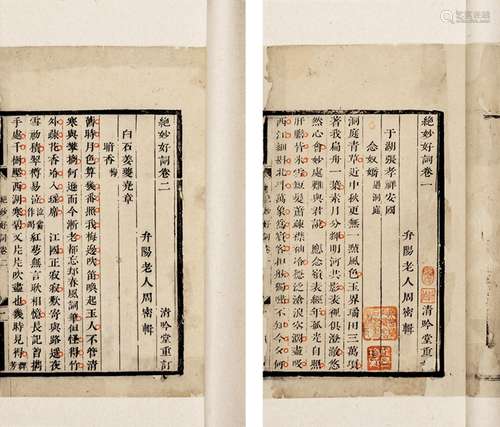 絕妙好詞卷一 清吟堂重
弁陽老人周密輯
于湖張孝祥安國
念奴嬌 過洞庭
洞庭青草近中秋更無一點風色玉界瓊田三萬頃
著我扁舟一葉素月分輝明河共影表裡俱澄澈悠
然心會妙處難與君說 應念嶺表經年孤光自照
肝膽皆冰雪短髮蕭疎襟袖冷穩泛滄浪空闊盡吸
西江細斟北斗萬象為賓客扣舷獨嘯不知今夕何
絕妙好詞卷二 清吟堂重訂
弁陽老人周密輯
白石姜夔堯章
暗香 梅
舊時月色算幾番照我梅邊吹笛喚起玉人不管清
寒與攀摘何遜而今漸老都忘却春風詞筆但怪得竹
外疎花香冷入瑤席 江國正寂寂歎寄與路遙夜
雪初積翠尊易泣紅萼無言耿相憶長記曾攜
手處千樹壓西湖寒碧又片片吹盡也幾時見得
絕妙好詞卷二